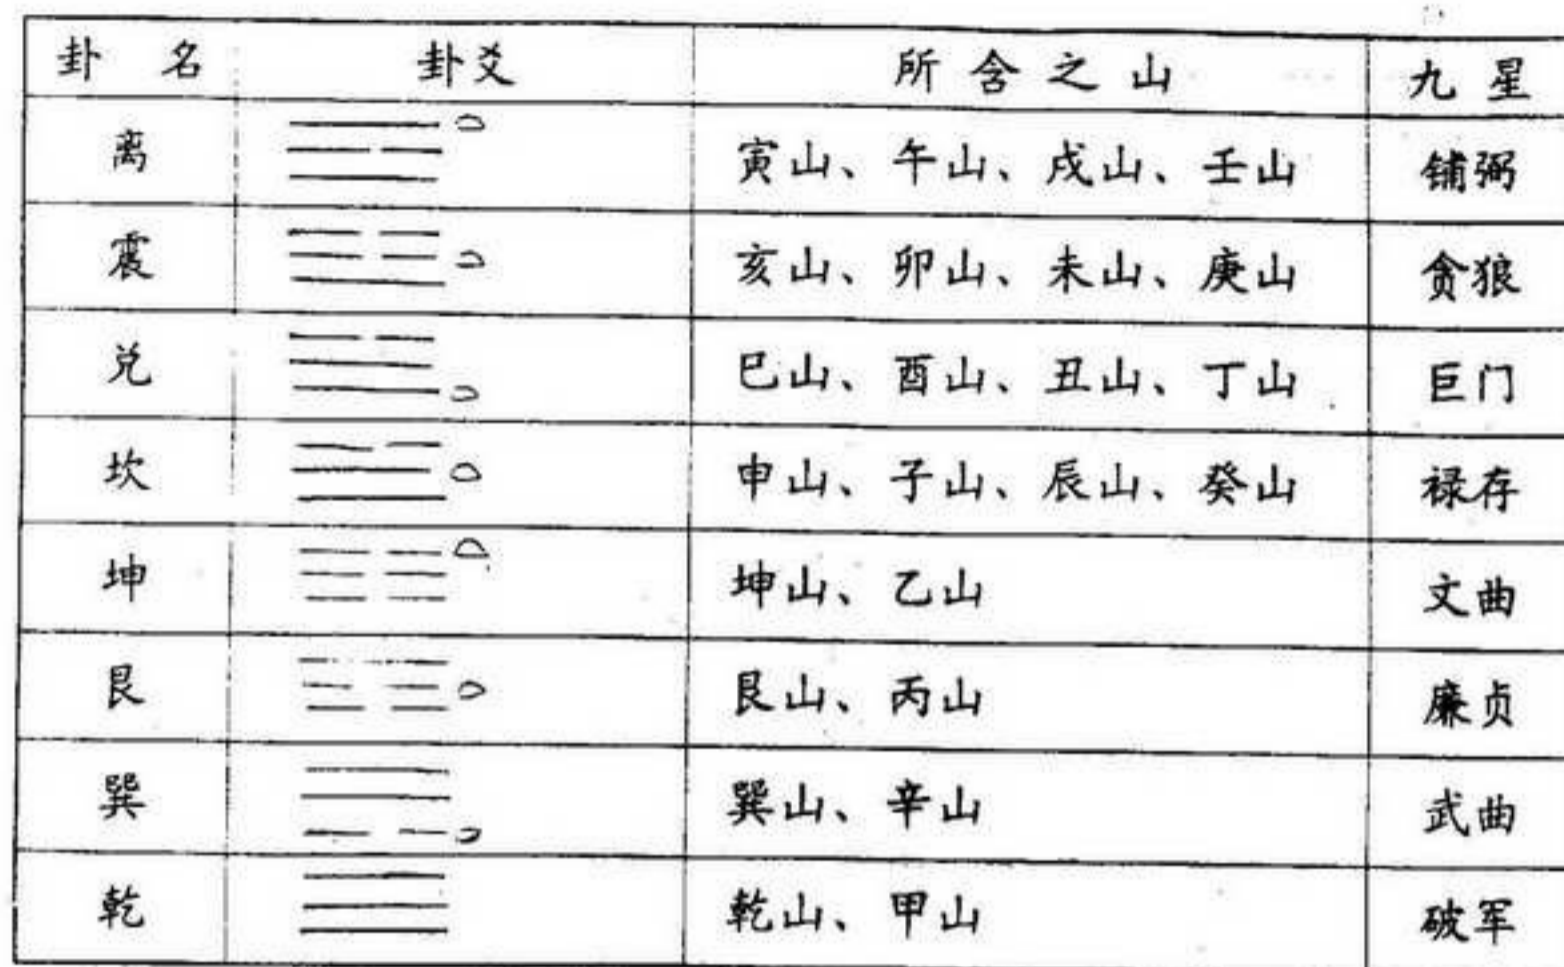 卦 名 卦爻 所 含 之 山 九 星
离 寅山、午山、戌山、壬山 铺弼
震 亥山、卯山、未山、庚山 贪狼
兑 巳山、酉山、丑山、丁山 巨门
坎 申山、子山、辰山、癸山 禄存
坤 坤山、乙山 文曲
艮 艮山、丙山 廉贞
巽 巽山、辛山 武曲
乾 乾山、甲山 破军